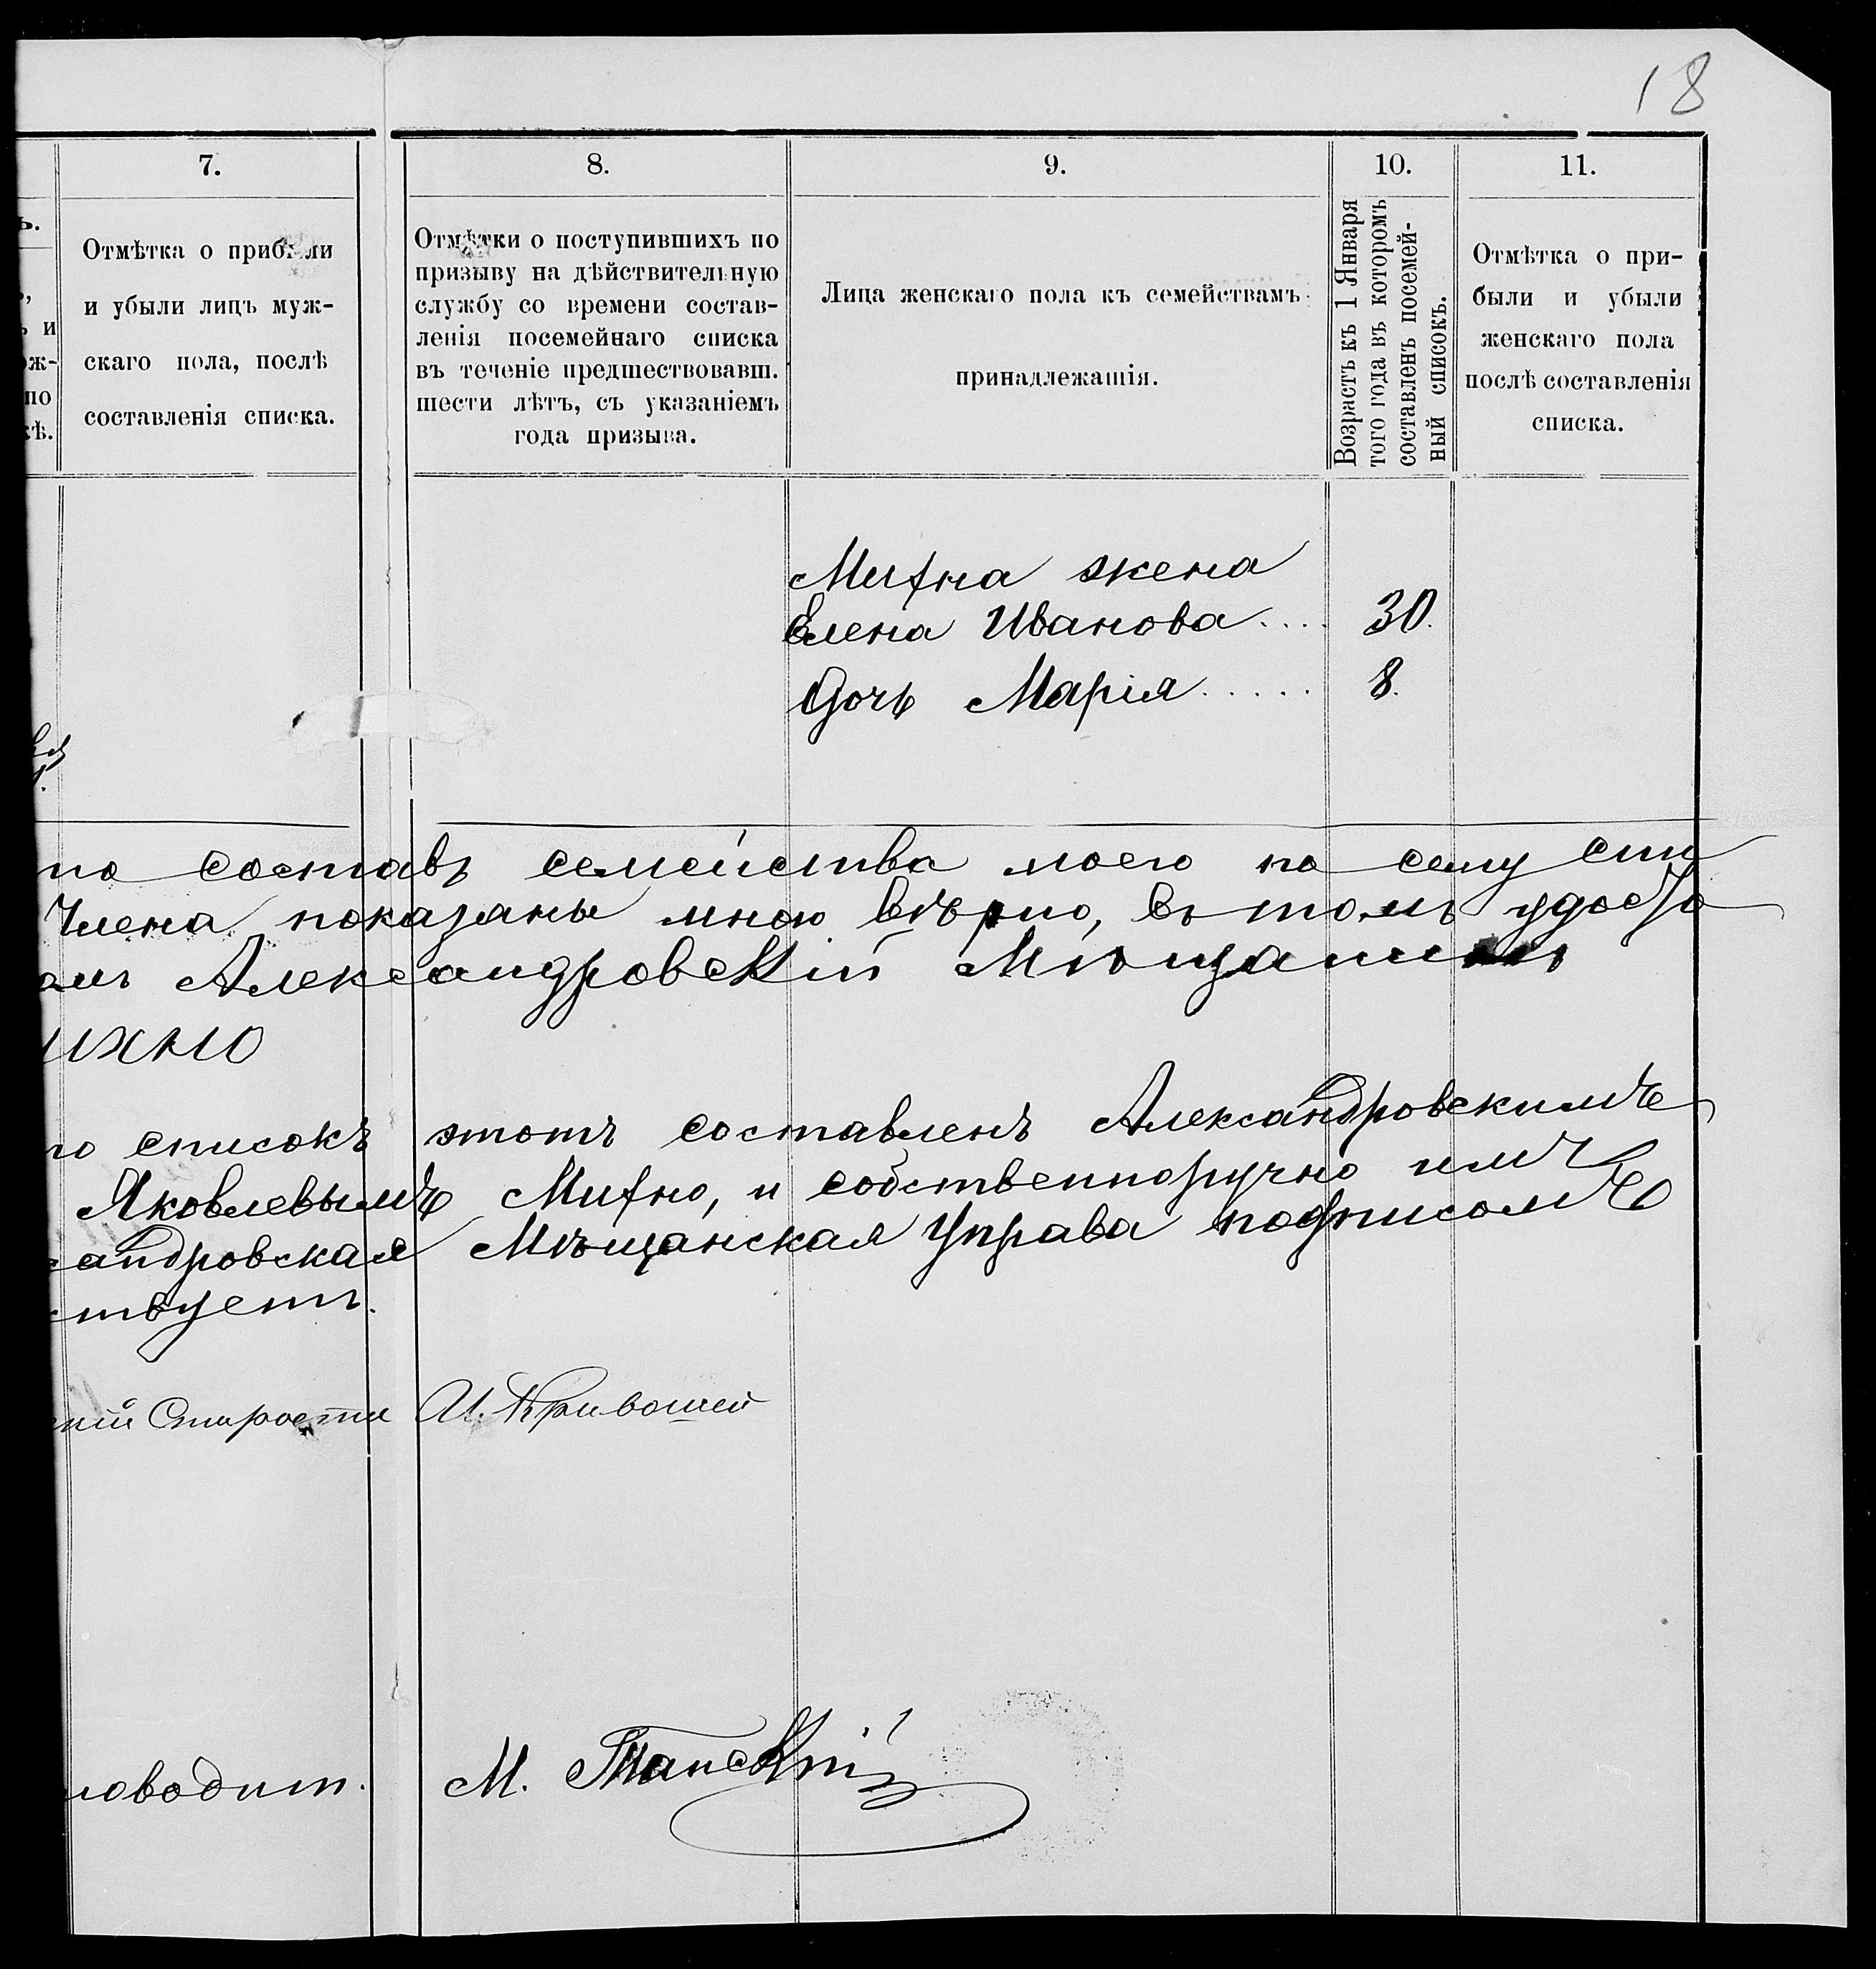 18
7.
Отмѣтка о прибыли
и убыли лицъ муж-
скаго пола, послѣ
составленія списка.
8.
Отмѣтки о поступившихъ по
призыву на дѣйствительную
службу со времени состав-
ленія посемейнаго списка
въ теченіе предшествовавш.
шести лѣтъ, съ указаніемъ
года призыва.
9.
Лица женскаго пола къ семействамъ
принадлежащія.
10.
Возрастъ къ 1 Января
того года въ которомъ
составленъ посемей-
ный списокъ.
11.
Отмѣтка о при-
были и убыли
женскаго пола
послѣ составленія
списка.
ъ.
ь,
ъ и
ож-
по
кѣ.
Михна жена
Елена Иванова.... 30.
Дочь Марія..... 8.
то составъ семейства моего по сему спи
Члена показаны мною вѣрно, въ томъ удосто
амъ Александровскій Мѣщанинъ
ихно
то списокъ этотъ составленъ Александровскимъ
Яковлевымъ Михно, и собственноручно имъ
сандровская Мѣщанская Управа подписомъ
ствуетъ.
кій Староста И. Кривошей
ловодит. М.